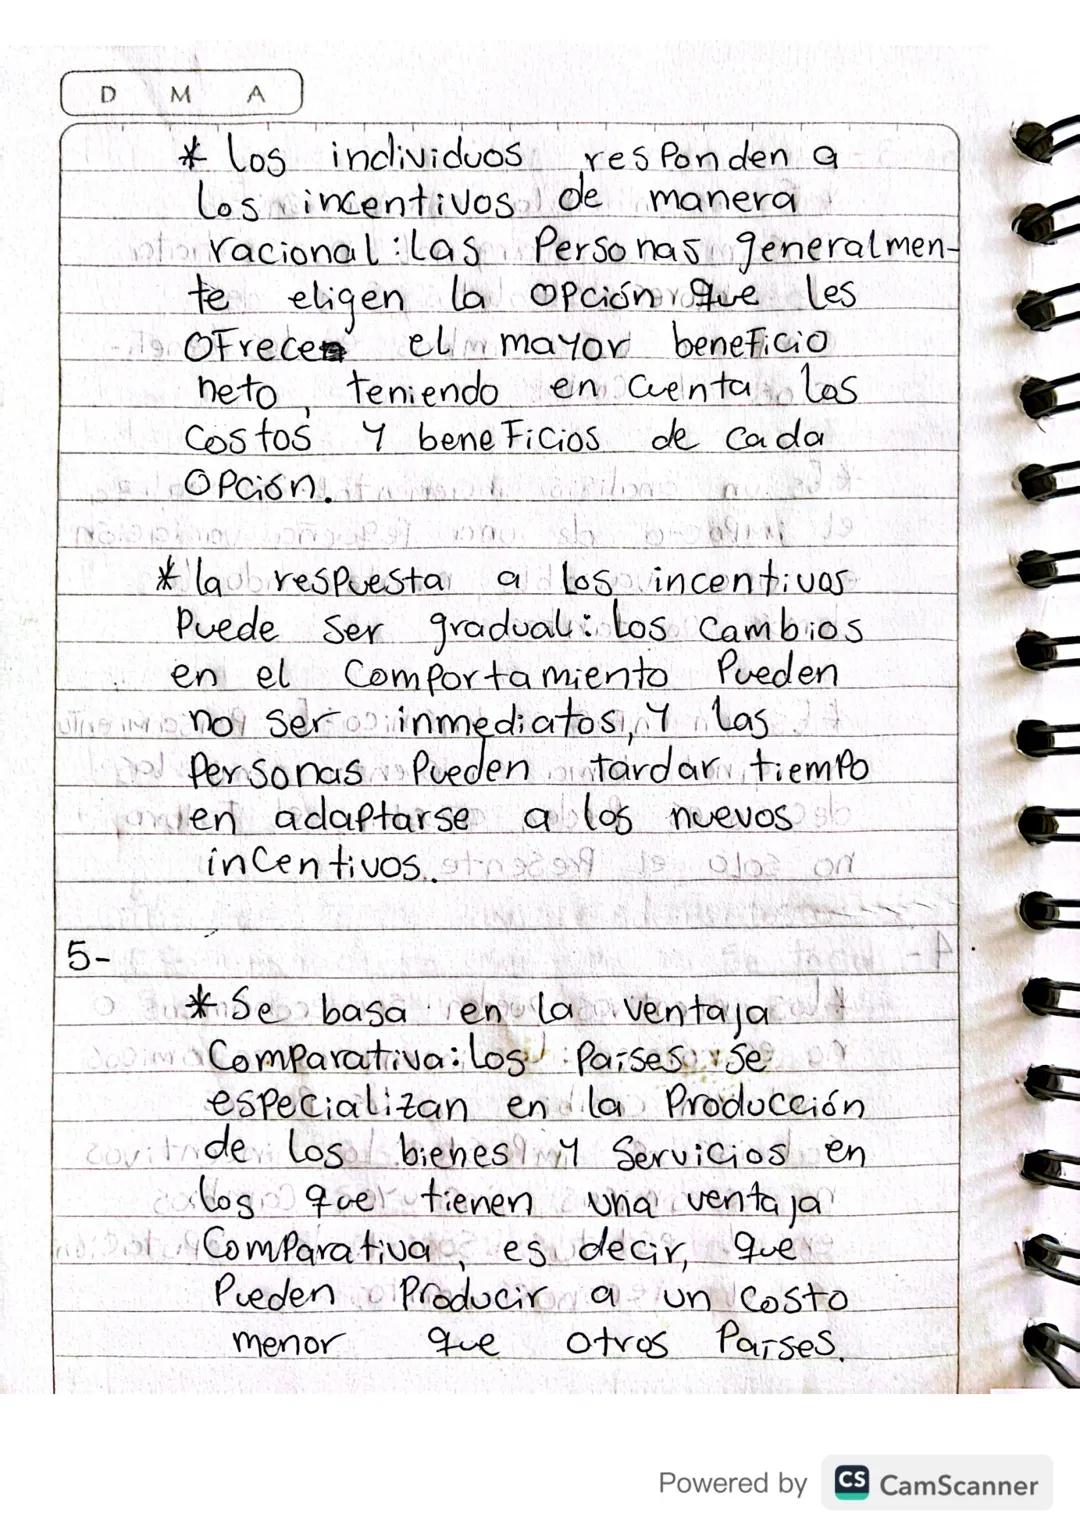 D M A
* los individuos responden a
los incentivos de manera
racional: las Personas generalmen-
te eligen la opción que les
ofrecen el mayor beneficio
neto, teniendo en cuenta los
costos y beneficios de cada
opción.
* la respuesta a los incentivos
Puede ser gradual: Los cambios
en el comportamiento Pueden
no ser inmediatos, y las
Personas Pueden tardar tiempo
en adaptarse a los nuevos
incentivos.
5-
* Se basa en la ventaja
Comparativa: los Países se
especializan en la Producción
de los bienes y Servicios en
los que tienen una ventaja
Comparativa, es decir, que
Pueden Producir a un costo
menor que otros Países.
Powered by CS CamScanner